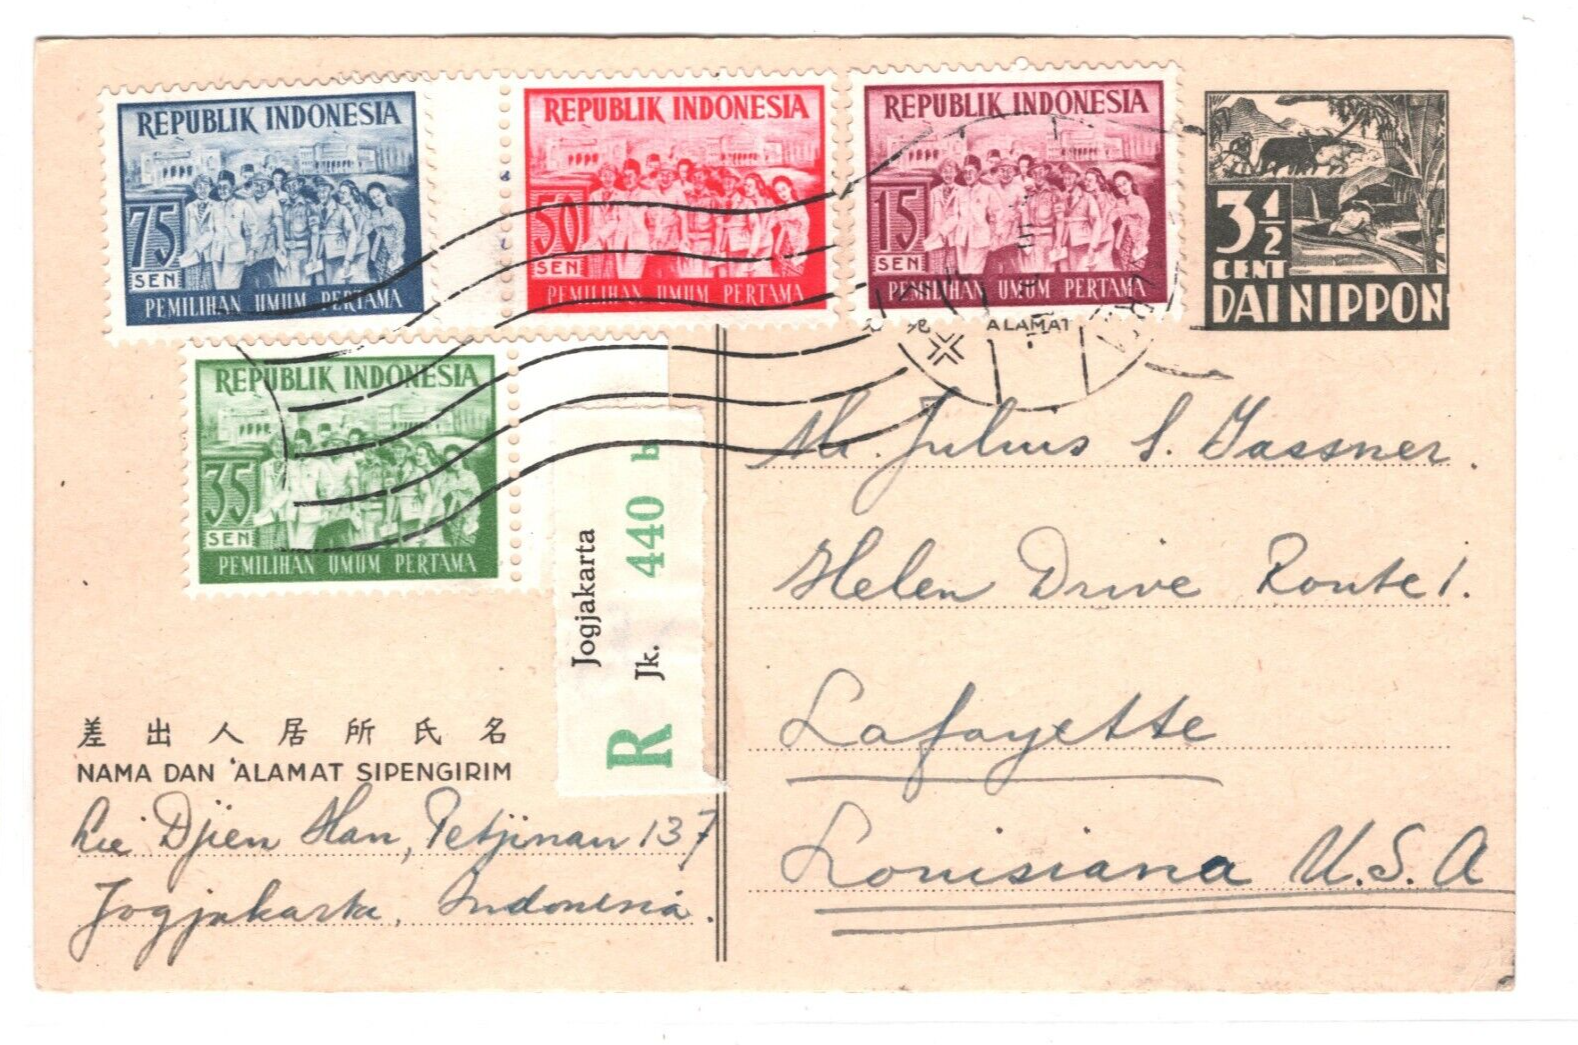 REPUBLIK INDONESIA
75
SEN
PEMILIHAN UMUM PERTAMA
REPUBLIK INDONESIA
50
SEN
PEMILIHAN UMUM PERTAMA
REPUBLIK INDONESIA
15
SEN
PEMILIHAN UMUM PERTAMA
3 1/2
CENT
DAI NIPPON
ALAMAT
REPUBLIK INDONESIA
35
SEN
PEMILIHAN UMUM PERTAMA
Jogjakarta
R Jk. 440 b
Mr. Julius S. Gassner.
Helen Drive Route 1.
Lafayette
Louisiana U.S.A
差出人居所氏名
NAMA DAN 'ALAMAT SIPENGIRIM
Lie Djien Han, Petjinan 137
Jogjakarta, Indonesia.